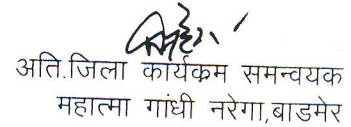 अति.जिला कार्यक्रम समन्वयक
महात्मा गांधी नरेगा,बाडमेर